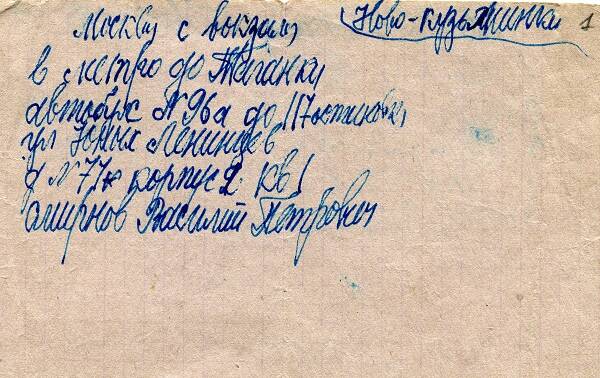 Ново-кузьминки 1
Москву с вокзала
в метро до Таганки
автобус N 96а до 117 остановки
ул Юных Ленинцев
д N 77 корпус 2 кв 1
Смирнов Василий Петрович